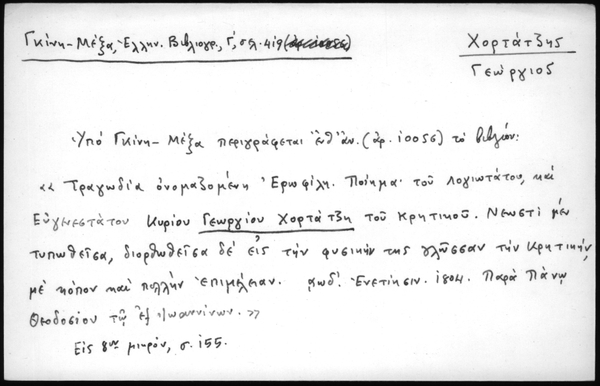 Γκίνη - Μέξα, Ἑλλην. Βιβλιογρ., Γ', σελ. 419
Χορτάτζης
Γεώργιος
Ὑπό Γκίνη - Μέξα περιγράφεται ἐνθ' ἀν. (ἀρ. 10056) τό βιβλίον:
«Τραγωδία ὀνομαζομένη Ἐρωφίλη. Ποίημα τοῦ λογιωτάτου, καί
Εὐγενεστάτου Κυρίου Γεωργίου Χορτάτζη τοῦ Κρητικοῦ. Νεωστί μέν
τυπωθεῖσα, διορθωθεῖσα δέ εἰς τήν φυσικήν της γλῶσσαν τήν Κρητικήν,
μέ κόπον καί πολλήν ἐπιμέλειαν. ͵αωδ'. Ἐνετίησιν. 1804. Παρά Πάνῳ
Θεοδοσίου τῷ ἐξ Ἰωαννίνων.»
Εἰς 8ον μικρόν, σ. 155.